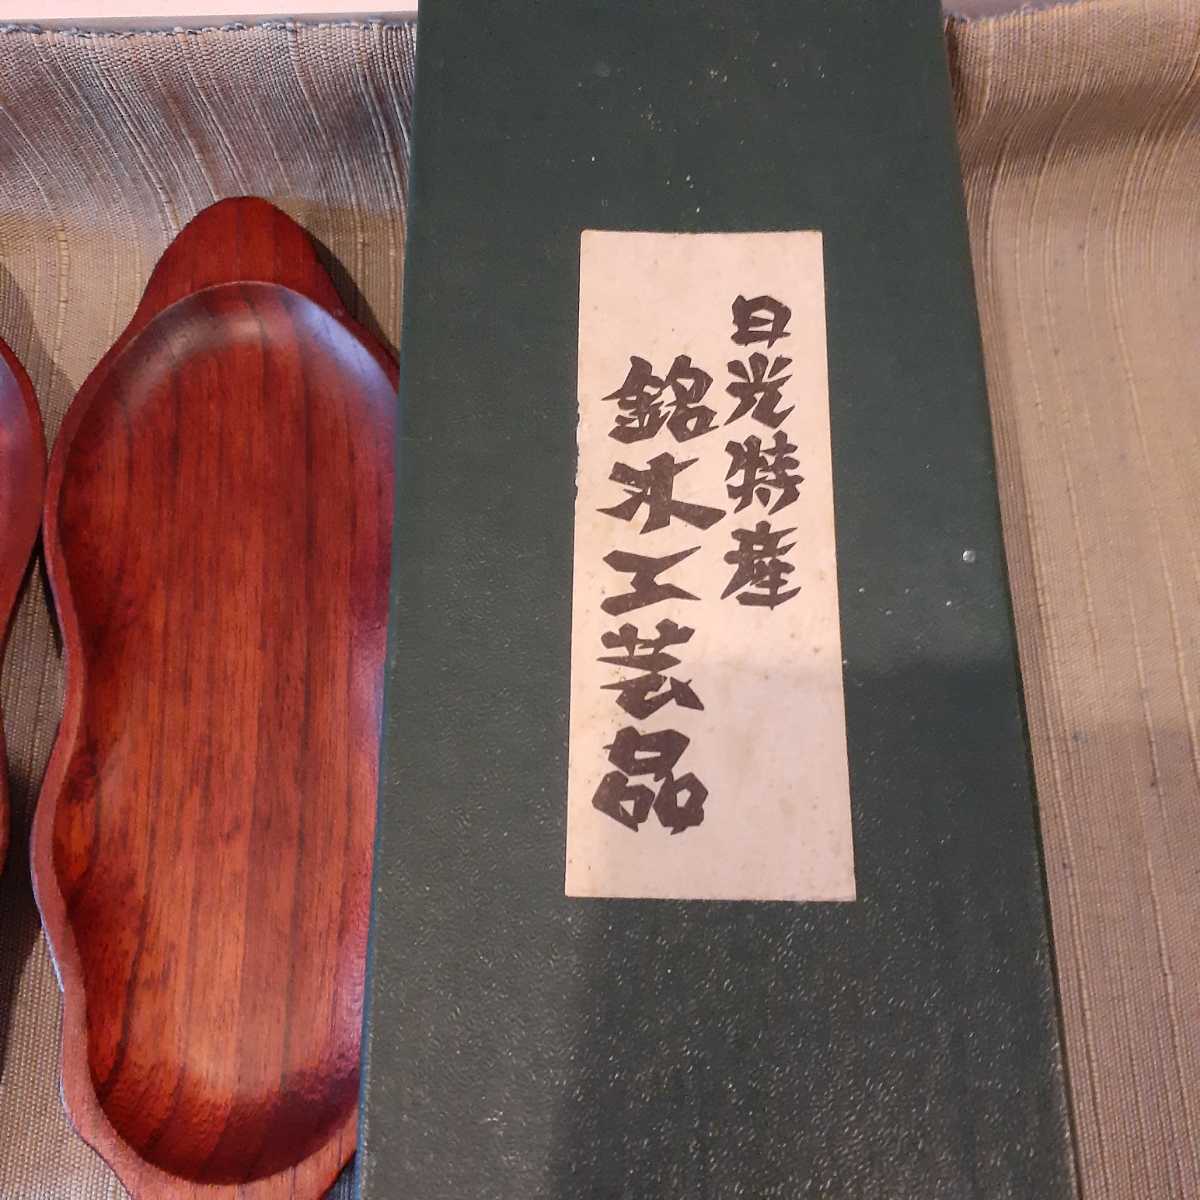 日光特産
銘木工芸品